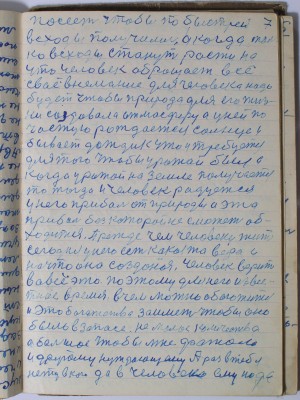 7
посеет чтобы по быстрей
всходы получились, а когда
всходы станут расти на
что человек обращает всё
своё внимание для человека надо
будет чтобы природа для его жиз-
ни создавала атмосферу а у ней по
частую рождается солнце и
бывает дождик что и требует
для того чтобы урожай был а
когда урожай на Земле получается
то тогда и человек радуется
у него прибал от природы а эта
прибыл без которой не сможет об-
ходится. Прежде чем человеку жить
сегодня у него есть какая то вера
на что она создана. Человек верит
во всё это по этому длиного
время. в чем можно обогатится
и Это богатство займет чтобы оно
было в запасе, не мелок количества
а большое чтобы мне досталось
и другому нуждающему А раз в тебя
нету кого да в человека ему надо